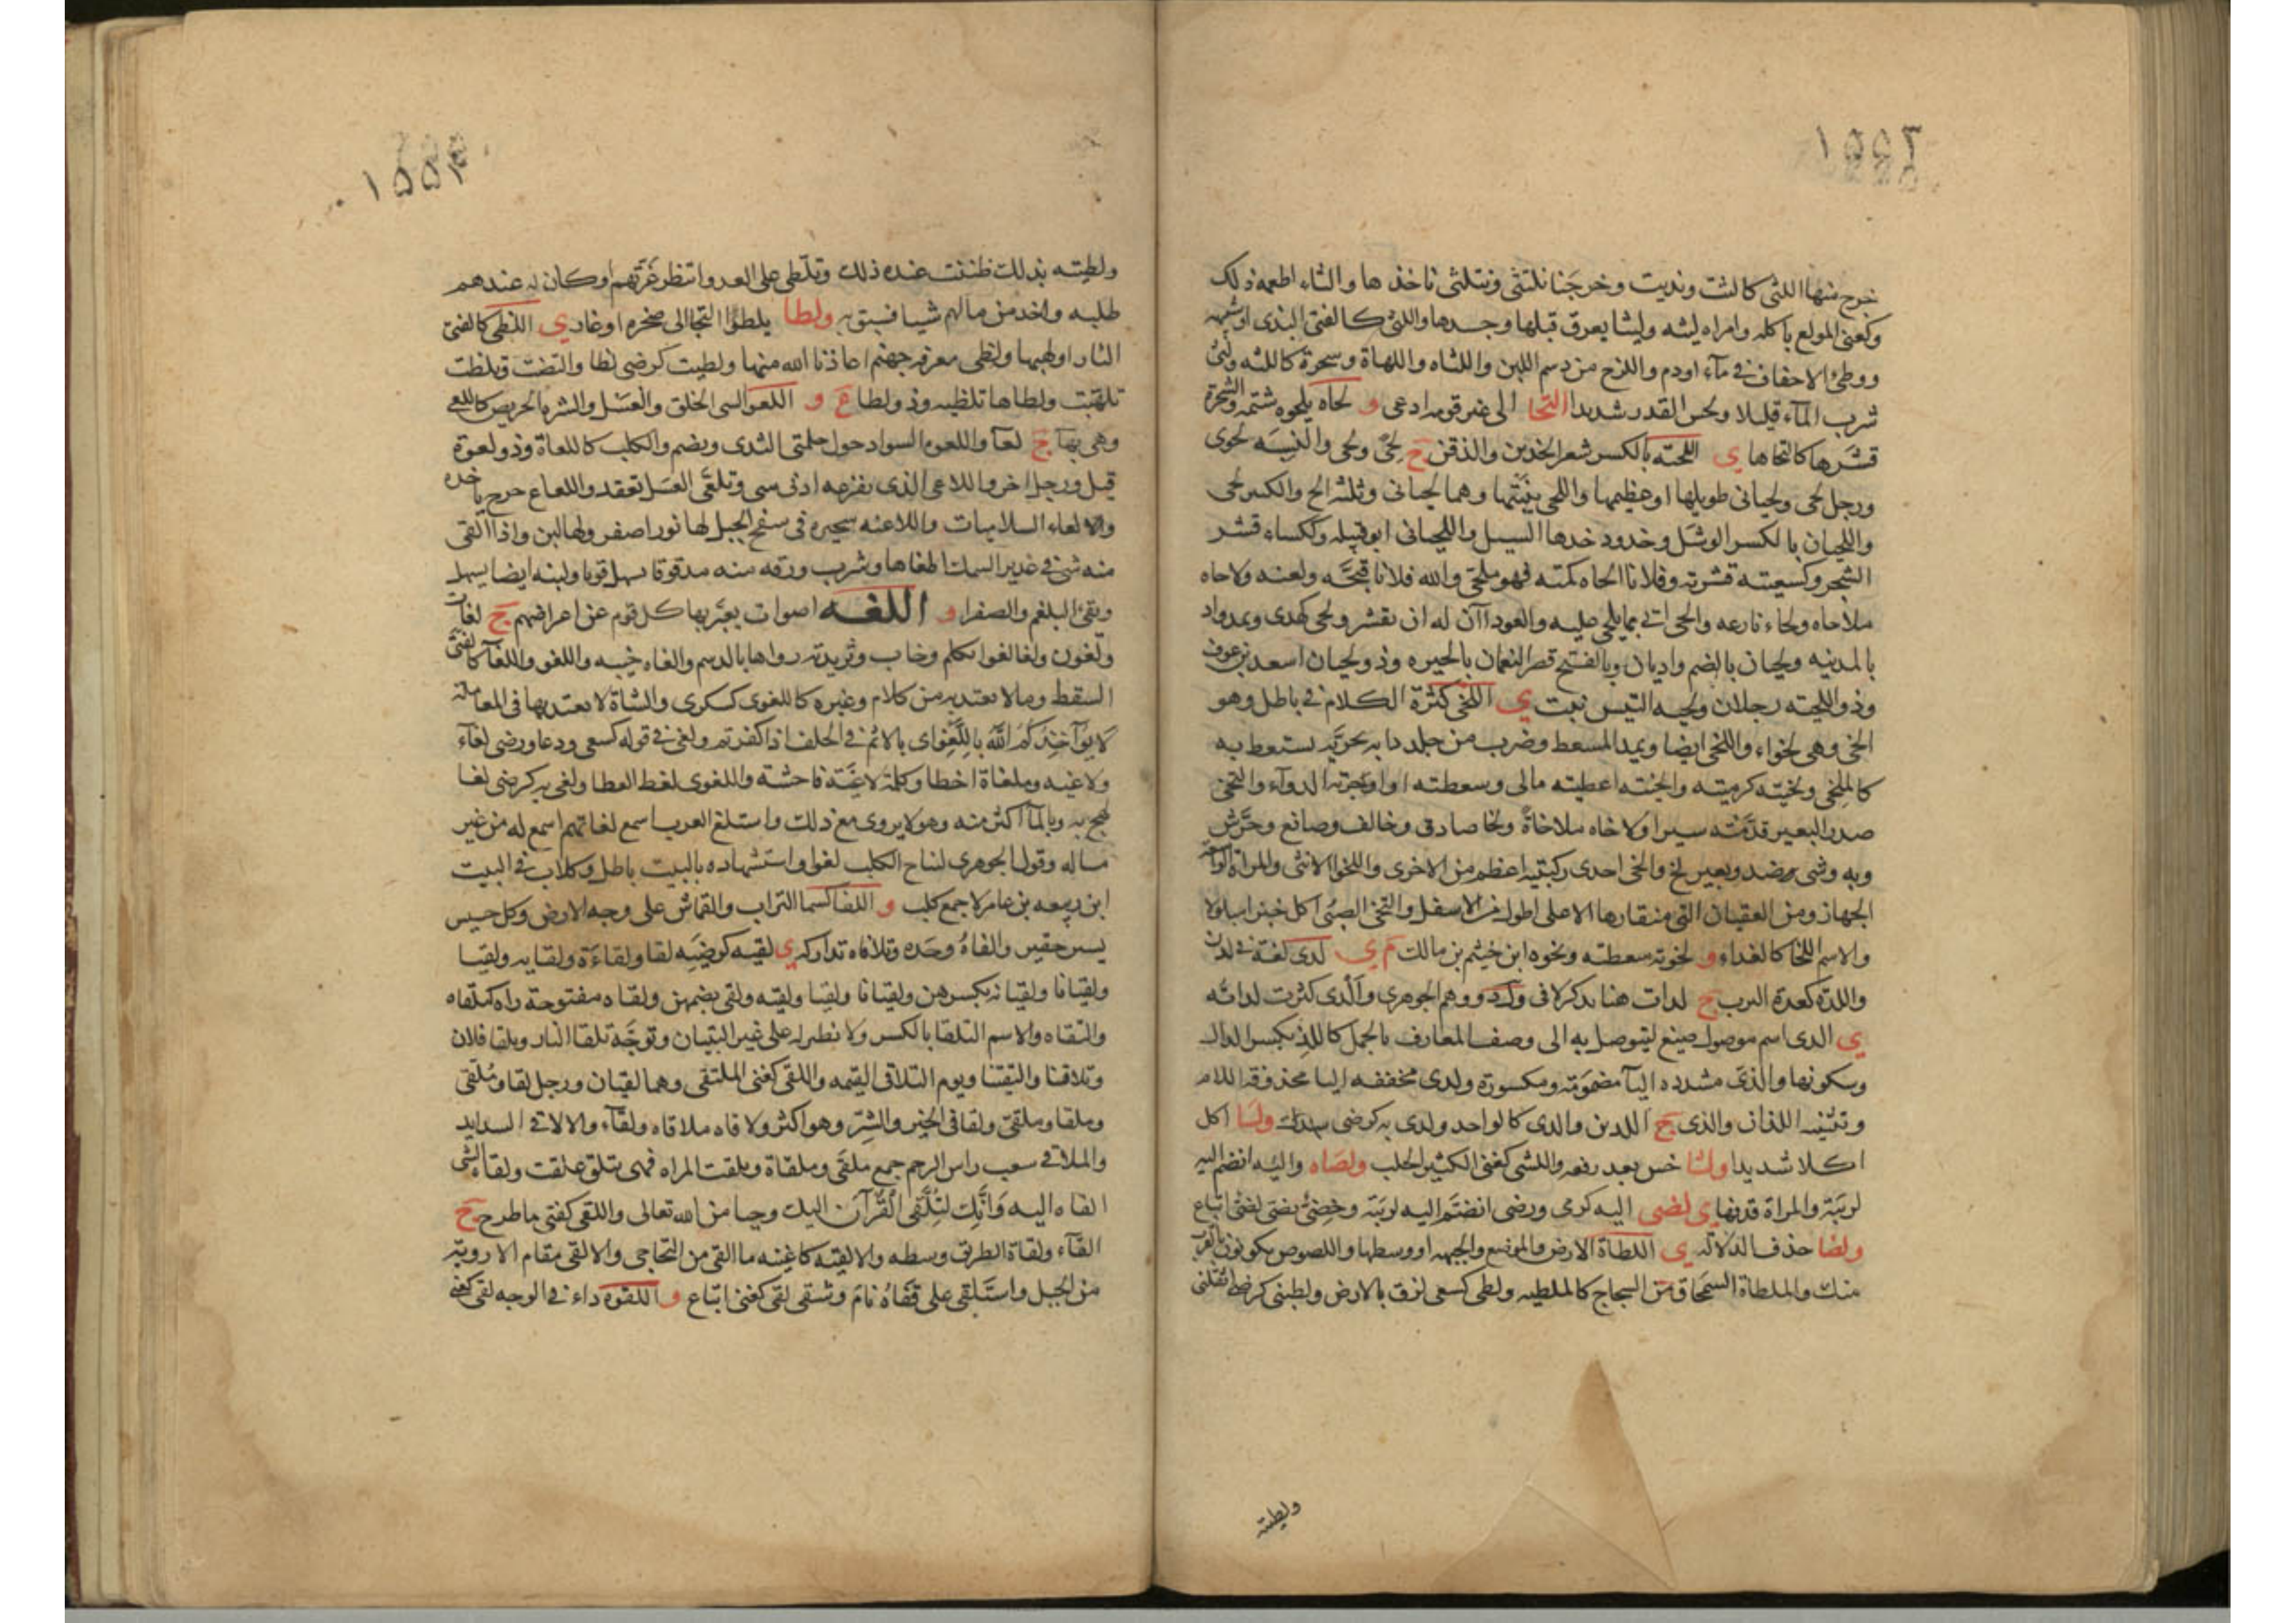 ١٥٥٣
خرج منها اللثى كالثت ونديت وخرجنا نلتثى ونتلثى ناخذها والثاء اطعمه ذلك
وكغنى المولع باكله وامراه لثيه ولثيا يعرق قبلها وجسدها واللثى كالفتى الندى او شبهه
ووطئ الاخفاف فى مآء اودم واللزج من دسم اللبن واللثاه واللهاة وشجرة كاللثه ولثى
شرب المآء قليلا ولحس القدر شديدا التحا الى غير قومه ادعى و لحاه يلحوه شتمه والشجرة
قشرها كالتحاها ي اللحيه بالكسر شعر الخدين والذقن ج لحى ولحى والنسبه لحوى
ورجل لحى ولحيانى طويلها او عظيمها واللحى منبتها وهما لحيان وثلثه الح والكسر لحى
واللحيان بالكسر الوشل وخدود خدها السيل واللحيانى ابو قبيله وككساء قشر
الشجر وكسعيته قشرته وفلانا الحاه لمته فهو ملحى والله فلانا قبحه ولعنه ولاحاه
ملاحاه ولحاء نازعه والحى اتى بما يلحى عليه والعود آن له ان يقشر ولحى كهدى ويمد واد
بالمدينه ولحيان بالضم واديان وبالفتح قصر النعمان بالحيره وذو لحيان اسعد بن عوف
وذو اللحيته رجلان ولحيه التيس نبت ي اللخى كثرة الكلام فى باطل وهو
الخى وهى لخواء واللخى ايضا ويمد المسعط وضرب من جلد دابه بحريه يستعط به
كالملخى ولخيته كرميته والخيته اعطيته مالى وسعطته او اوجرته الدوآء والتخى
صدر البعير قد منه سيرا ولاخاه ملاخاة ولخا صادق وخالف وصانع وحرش
وبه وشى ضد وبعير لخ والخى احدى ركبتيه اعظم من الاخرى واللخوا الانثى والمراة الواسعه
الجهاز ومن العقبان التى منقارها الاعلى اطول من الاسفل والتخى الصبى اكل خبزا مبلولا
والاسم اللخا كالغداء و لخوته سعطته ونخوه ابن خيثم بن مالك م ي لدى لغة فى لدن
واللدة كعدة الترب ج لدات هنا يذكر لا فى ولد ووهم الجوهرى والدى كثرت لداته
ي الذى اسم موصول صيغ ليتوصل به الى وصف المعارف بالجمل كاللذ بكسر الذال
وسكونها والذى مشدده اليآ مضمومة ومكسورة ولذى مخففه اليا محذوفه اللام
وتثنيه اللذان والذى ج اللذين والذى كالواحد ولذى به كرضى سدك ولسا اكل
اكلا شديدا ولشا خس بعد رفعه واللشى كغنى الكثير الحلب ولصاه واليه انضم اليه
لريبة والمراة قذفها ي لصى اليه كرمى ورضى انضم اليه لريبة وخصى بصى لصى اتباع
ولضا حذف الدلاله ي اللطاة الارض والموضع والجبهه او وسطها واللصوص يكونون بالقرب
منك والملطاة السمحاق من الشجاج كالملطيه ولطى كسعى لزق بالارض ولطينى كرضى اثقلنى
ولطيته
١٥٥٤
ولطيته بذلك ظننت عنده ذلك وتلطى على العدو انتظر غرتهم او كان له عندهم
طلبه واخذ من مالهم شيا فسبق به ولطا يلطوا التجا الى صخره او غار ي اللظى كالفتى
النار او لهبها ولظى معرفه جهنم اعاذنا الله منها ولظيت كرضى لظا والتظت وتلظت
تلهبت ولظاها تلظيه وذو لظا ع و اللعو السى الخلق والفسل والشره الحريص كاللعى
وهى بهآ ج لعآ واللعوه السواد حول حلمتى الثدى ويضم والكلبه كاللعاة وذو لعوة
قيل ورجل اخر واللاعى الذى يفزعه ادنى شى وتلعى العسل تعقد واللعاع خرج ياخذه
والالعاء السلاميات واللاعيه شجيره فى سفح الجبل لها نور اصفر ولها لبن واذا القى
منه شى فى غدير السمك اطفاها وشرب ورقه منه مدقوقا يسهل قويا ولبنه ايضا يسهل
ويقئ البلغم والصفرا و اللغه اصوات يعبر بها كل قوم عن اغراضهم ج لغات
ولغون ولغا لغوا تكلم وخاب وثريدته رواها بالدسم والغاه خيبه واللغو واللغا كالفتى
السقط وما لا يعتد به من كلام وغيره كاللغوى كسكرى والشاة لا يعتد بها فى المعامله
لا يؤآخذكم الله باللغو اى بالاثم فى الحلف اذا كفرتم ولغى فى قوله كسعى ودعا ورضى لغآء
ولاغيه وملغاة اخطا وكلمة لاغية فاحشه واللغوى لغط القطا ولغى به كرضى لغا
لهج به وبالمآ اكثر منه وهو لا يروى مع ذلك واستلغ العرب اسمع لغاتهم اسمع له من غير
مساله وقول الجوهرى لنباح الكلب لغوا واستشهاده بالبيت باطل وكلاب فى البيت
ابن ربيعه بن عامر لا جمع كلب و اللفا كسما التراب والقماش على وجه الارض وكل خسيس
يسير حقير والفاه وجده وتلافاه تداركه ي لقيه كرضيه لقا ولقاءة ولقايه ولقيا
ولقيانا ولقيانه بكسرهن ولقيانا ولقيا ولقيه ولقى بضمهن ولقاه مفتوحة رآه كتلقاه
والتقاه والاسم التلقا بالكسر ولا نظير له على غير التبيان وتوجه تلقا النار وتلقا فلان
وتلاقنا والتقينا ويوم التلاقى القيمه واللقى كغنى الملتقى وهما لقيان ورجل لقا وملقى
وملقا وملقى ولقا فى الخير والشر وهو اكثر ولاقاه ملاقاه ولقآء والالاقى الشدايد
والملاقى شعب راس الرحم جمع ملقى وملقاة وتلقت المراه فهى متلق علقت ولقاه الشى
القاه اليه وانك لتلقى القرآن اليك وحيا من الله تعالى واللقى كفتى ما طرح ج
القآء ولقاة الطريق وسطه والالقيه كاغنيه ما القى من التحاجى والالقى مقام الارويه
من الجبل واستلقى على قفاه نام وشقى لقى كغنى اتباع و اللقوة داء فى الوجه لقى كعنى